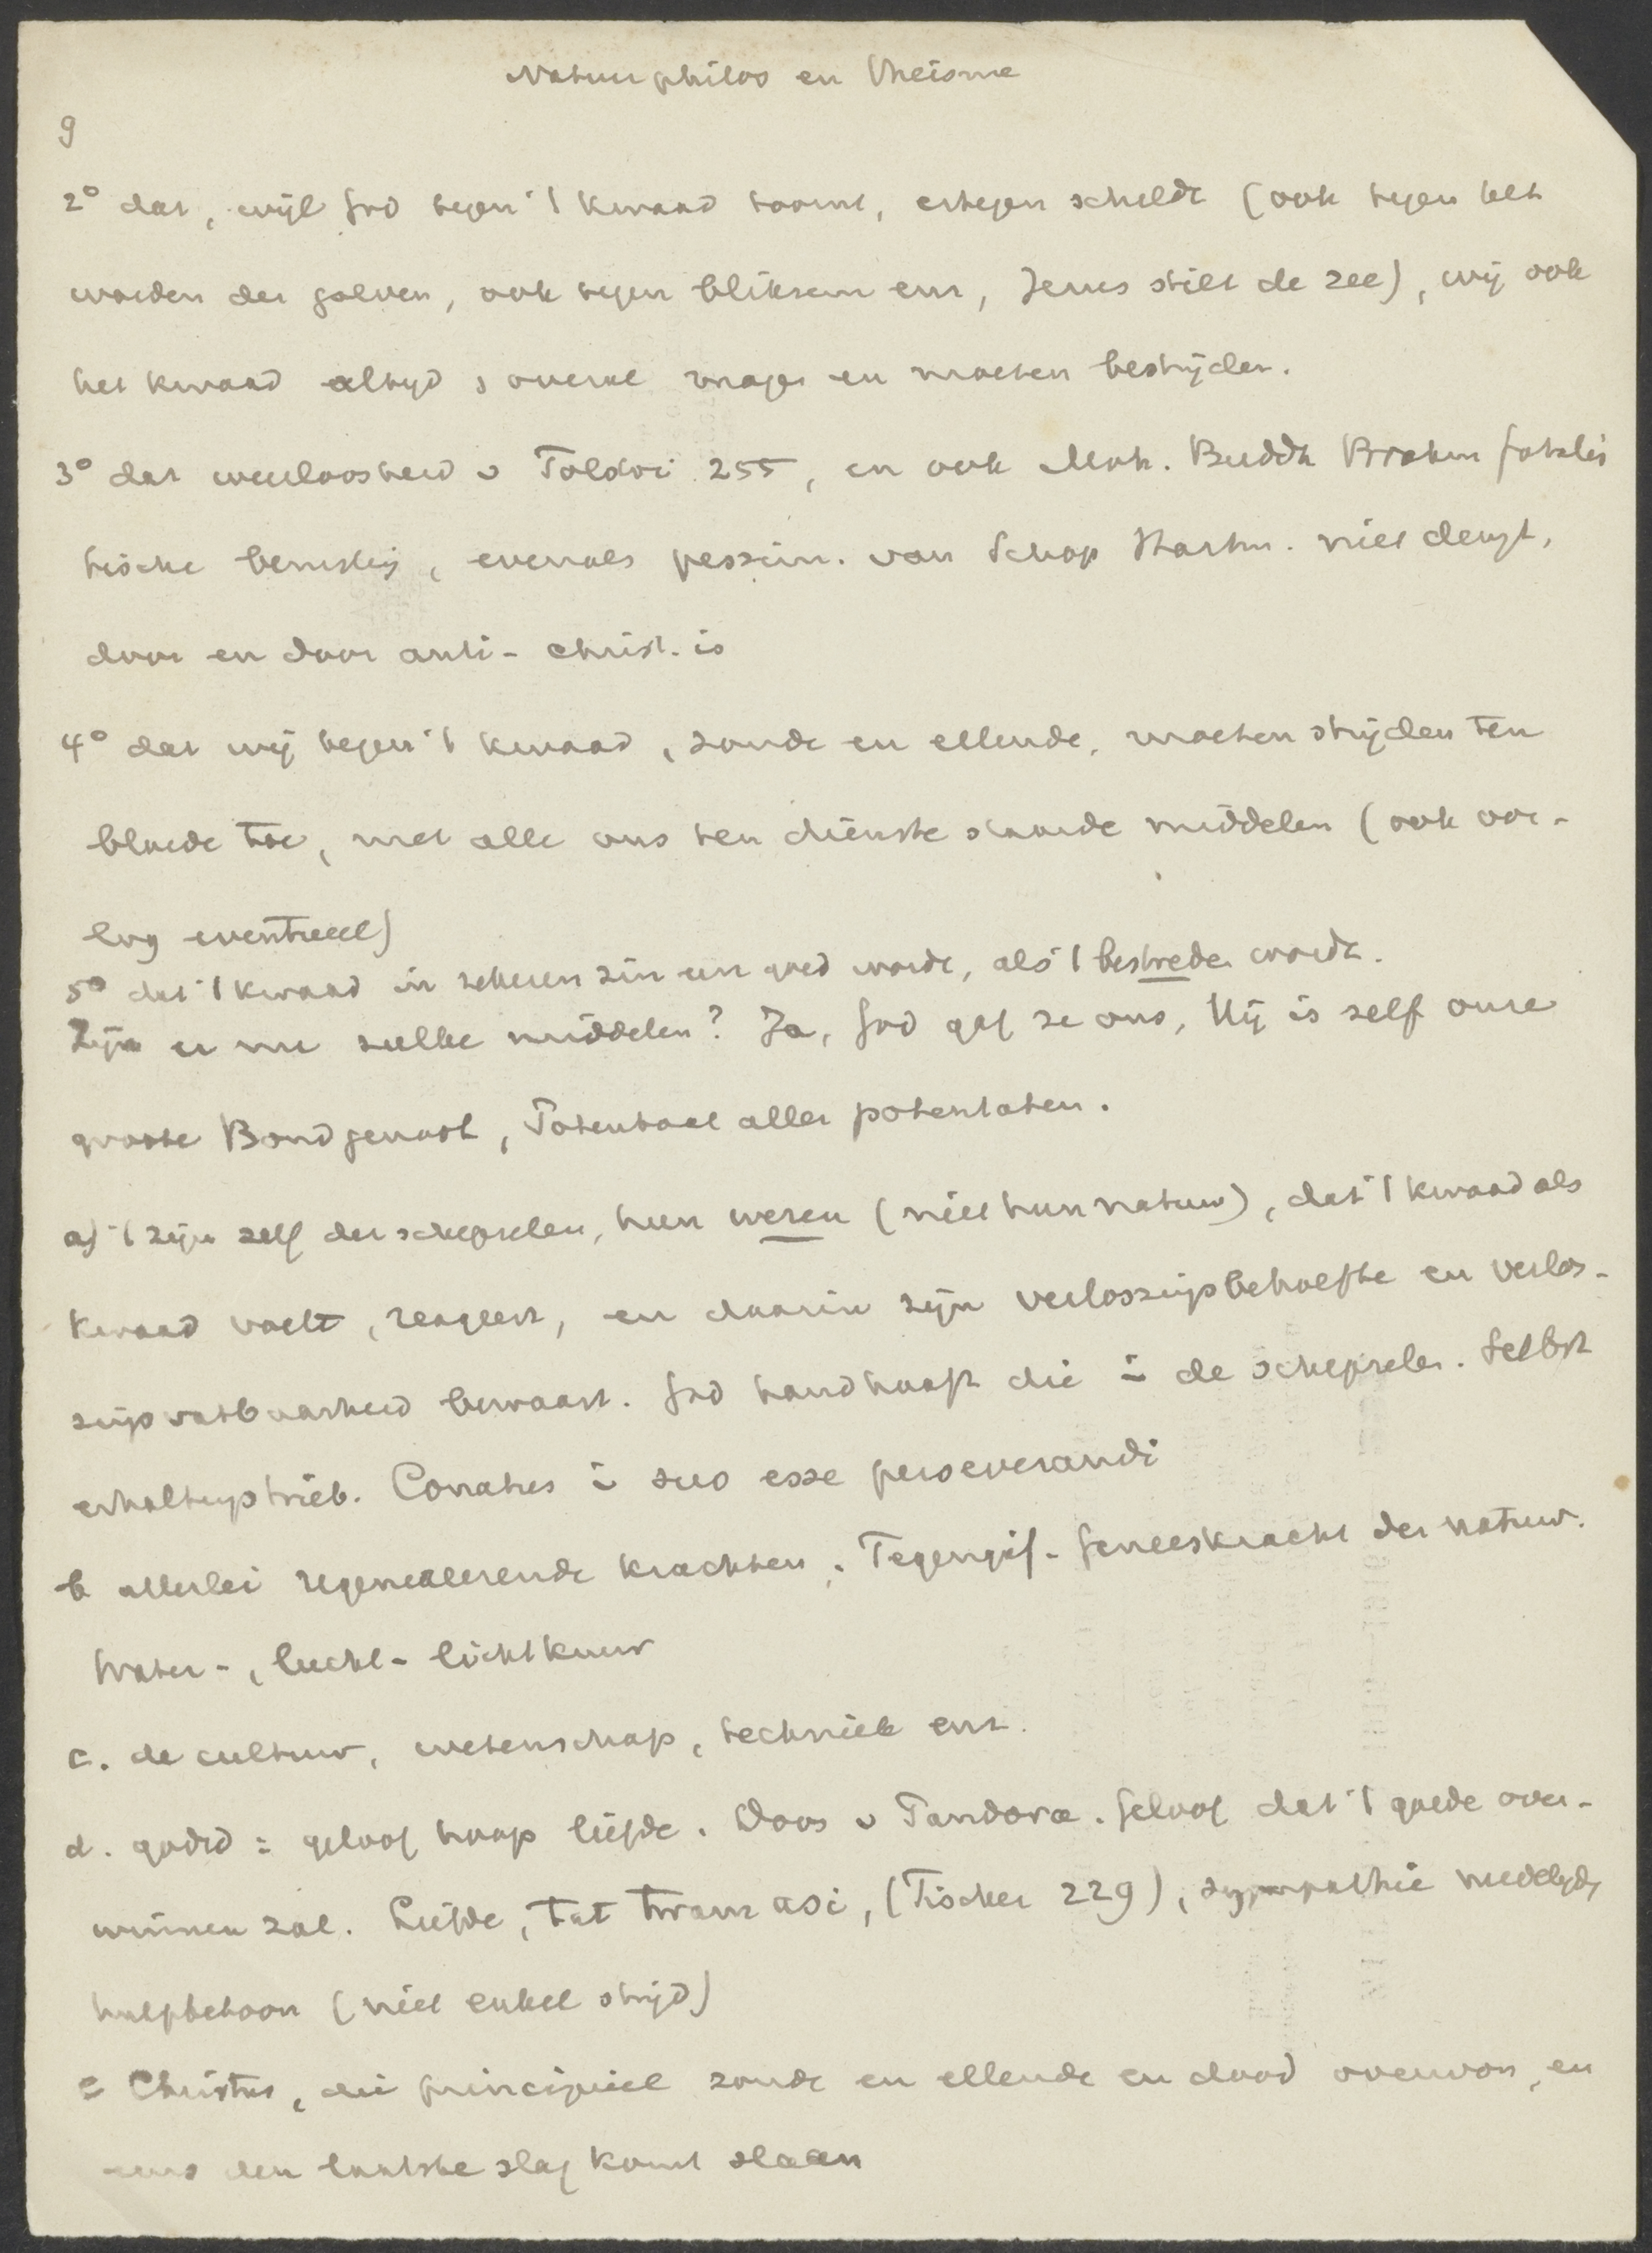 Natuurphilos en Theisme
9
2° dat, wijl God tegen 't kwaad toornt, ertegen scheldt (ook tegen het
woeden der golven, ook tegen bliksem enz, Jezus stilt de zee), wij ook
het kwaad altijd & overal mogen en moeten bestrijden.
3° dat weerloosheid v Tolstoi 255, en ook Moh. Buddh Brahm fatalis
tische berusting, evenals pessim. van Schop Hartm. niet deugt,
door en door anti-christ. is
4° dat wij tegen 't kwaad, zonde en ellende, moeten strijden ten
bloede toe, met alle ons ten dienste staande middelen (ook oor-
log eventueel)
5° dat 't kwaad in zekeren zin een goed wordt, als 't bestreden wordt.
Zijn er nu zulke middelen? Ja, God gaf ze ons, Hij is zelf onze
groote Bondgenoot, Potentaat aller potentaten.
a) 't zijn zelf der schepselen, hun wezen (niet hun natuur), dat 't kwaad als
kwaad voelt, reageert, en daarin zijn verlossingsbehoefte en verlos-
singsvatbaarheid bewaart. God handhaaft die in de schepselen. Selbst
erhaltungstrieb. Conatus in suo esse perseverandi
b allerlei regenereerende krachten. Tegengif- Geneeskracht der natuur.
Water-, lucht- lichtkuur
c. de cultuur, wetenschap, techniek enz.
d. godsd = geloof hoop liefde. Doos v Pandora. Geloof dat 't goede over-
winnen zal. Liefde, tat twam asi, (Fischer 229), sympathie medelijden
hulpbetoon (niet enkel strijd)
e Christus, die principieel zonde en ellende en dood overwon, en
eens den laatste slag komt slaan